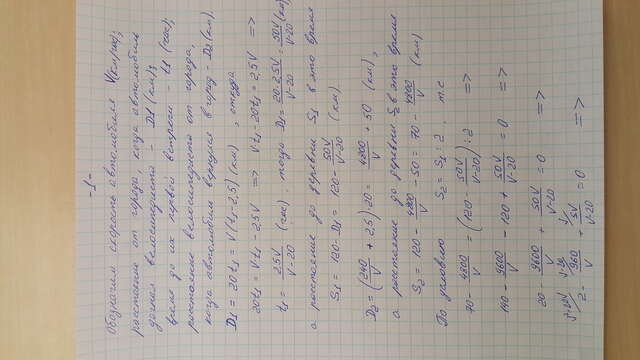 -1-
Обозначим скорость автомобиля V (км/час);
расстояние от города, когда автомобиль
догнал велосипедиста - D1 (км);
время до их первой встречи - t1 (час);
расстояние велосипедиста от города,
когда автомобиль вернулся в город - D2 (км).
D1 = 20t1 = V(t1-2,5) (км) , откуда
20t1 = Vt1 - 2,5V => V·t1 - 20t1 = 2,5V =>
t1 = 2,5V/(V-20) (час) . тогда D1 = 20·2,5V/(V-20) = 50V/(V-20) (км)
а расстояние до деревни S1 в это время
S1 = 120 - D1 = 120 - 50V/(V-20) (км)
D2 = (240/V + 2,5)·20 = 4800/V + 50 (км) ,
а расстояние до деревни S2 в это время
S2 = 120 - 4800/V - 50 = 70 - 4800/V (км)
По условию S2 = S1 : 2 , т.е
70 - 4800/V = (120 - 50V/(V-20)) : 2 =>
140 - 9600/V - 120 + 50V/(V-20) = 0 =>
20 - 9600/V + 50V/(V-20) = 0 =>
V²-20V/ V-20/ V/
2 - 960/V + 5V/(V-20) = 0 =>